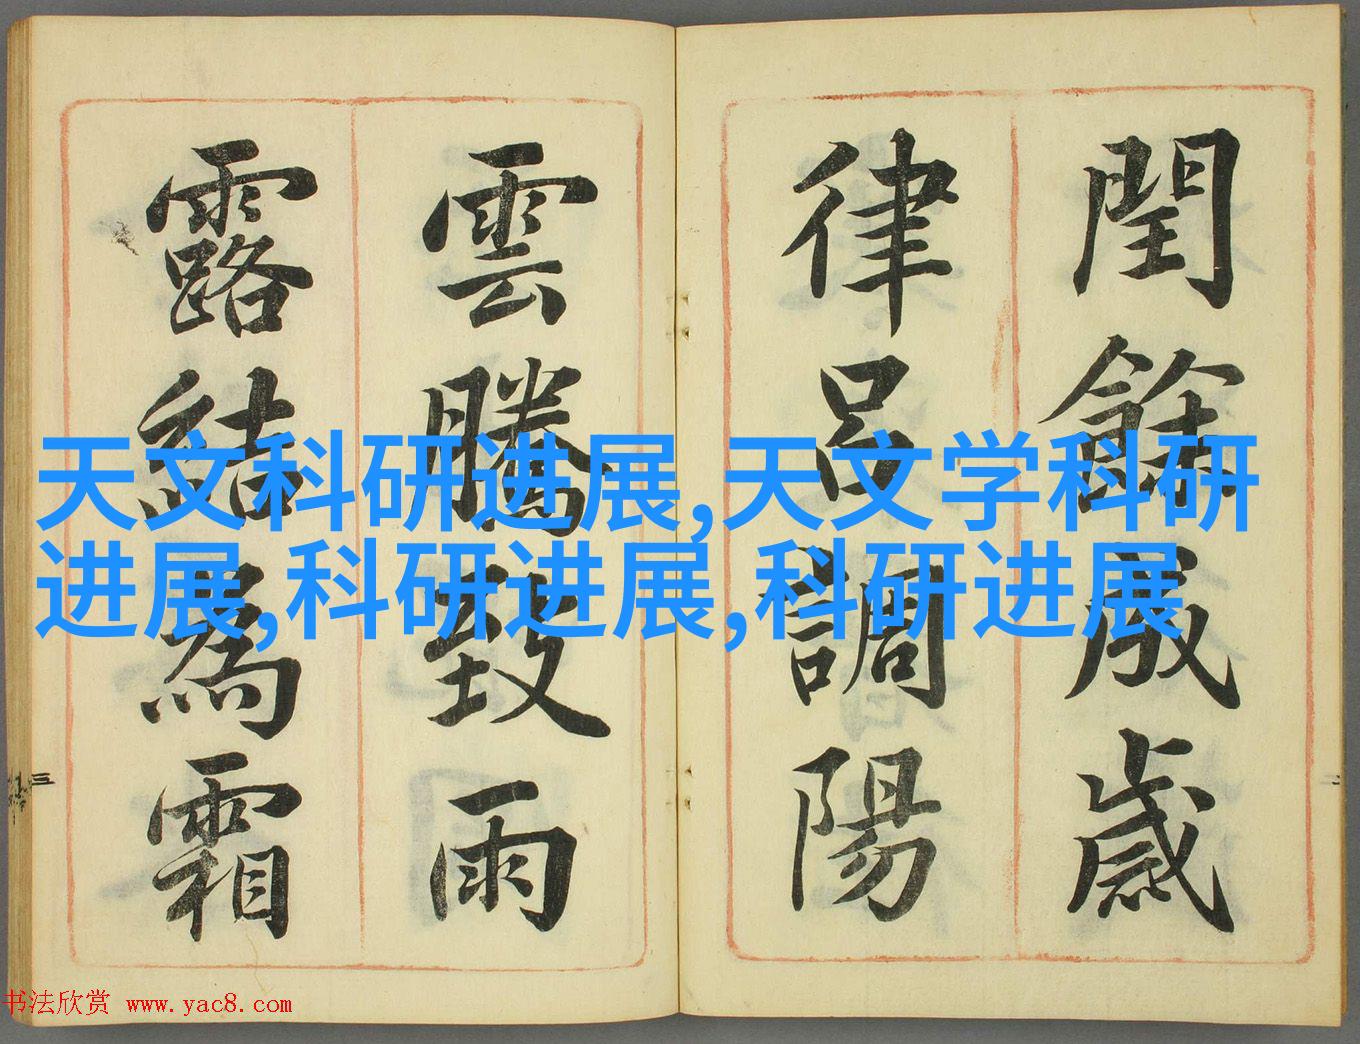 閏餘成歲
律呂調陽
雲騰致雨
露結為霜
天文科研进展,天文学科研
进展,科研进展,科研进展
三
二
书法欣赏 www.yac8.com